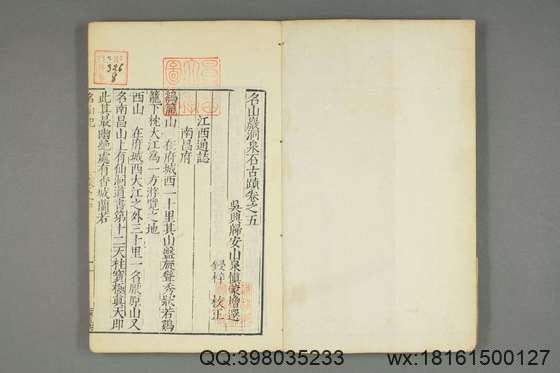 名山巖洞泉石古蹟卷之五
吳興歸安山泉慎蒙撰
校正
江西通誌
南昌府
鷄籠山 在府城西一十里其山盤礴聳秀狀若鷄
籠下枕大江為一方游覽之地
西山 在府城西大江之外三十里一名厭原山又
名南昌山上有仙洞道書第十二天柱寶極真天即
此其最幽絶處有香城蘭若
QQ:398035233
wx:18161500127